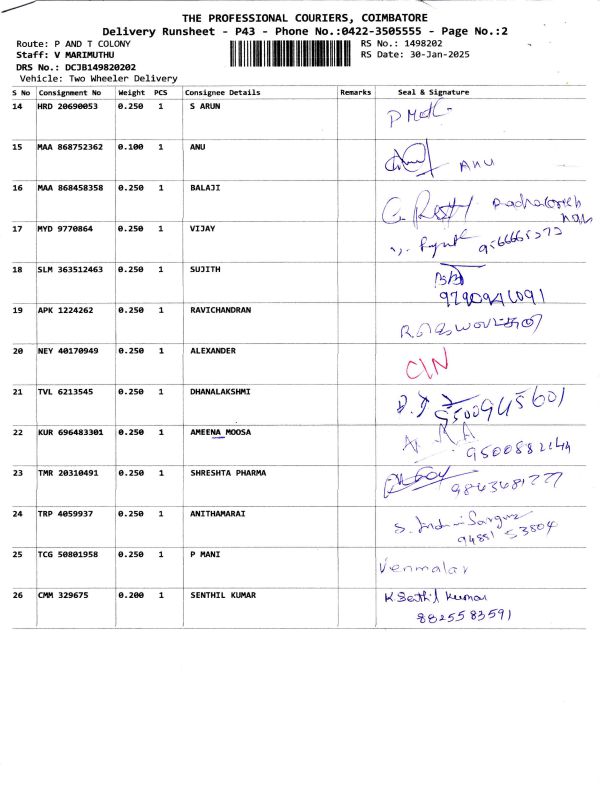 THE PROFESSIONAL COURIERS, COIMBATORE
Delivery Runsheet - P43 - Phone No.:0422-3505555 - Page No.:2
Route: P AND T COLONY
RS No.: 1498202
Staff: V MARIMUTHU
RS Date: 30-Jan-2025
DRS No.: DCJB149820202
Vehicle: Two Wheeler Delivery
S No Consignment No Weight PCS Consignee Details Remarks Seal & Signature
14 HRD 20690053 0.250 1 S ARUN
15 MAA 868752362 0.100 1 ANU ANU
16 MAA 868458358 0.250 1 BALAJI
17 MYD 9770864 0.250 1 VIJAY
18 SLM 363512463 0.250 1 SUJITH
9790941091
19 APK 1224262 0.250 1 RAVICHANDRAN
20 NEY 40170949 0.250 1 ALEXANDER C/N
21 TVL 6213545 0.250 1 DHANALAKSHMI
9500945601
22 KUR 696483301 0.250 1 AMEENA MOOSA
23 TMR 20310491 0.250 1 SHRESHTA PHARMA
24 TRP 4059937 0.250 1 ANITHAMARAI
94881 53804
25 TCG 50801958 0.250 1 P MANI
Venmalar
26 CMM 329675 0.200 1 SENTHIL KUMAR K Senthil kumar
8825583591